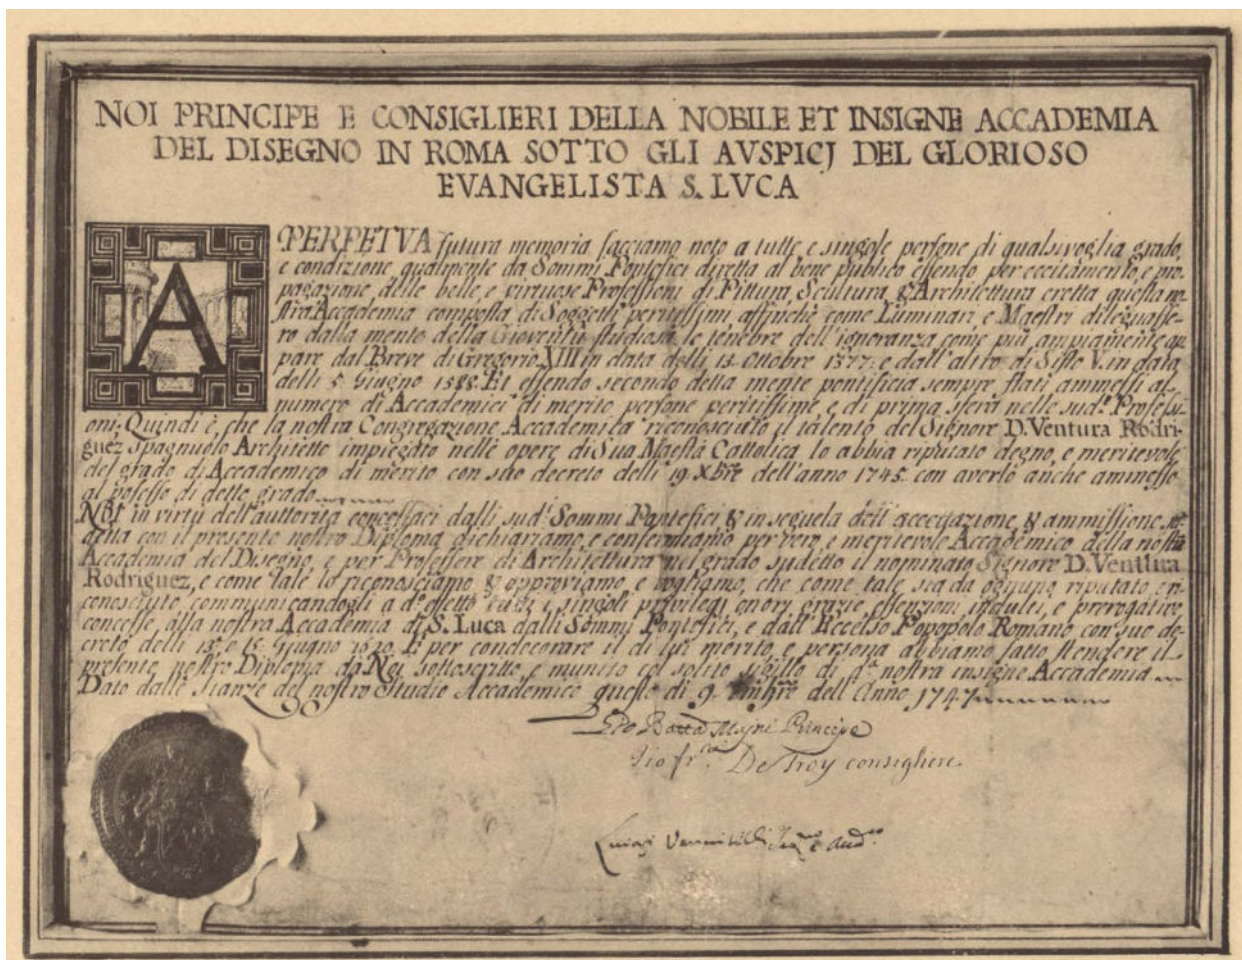 NOI PRINCIPE E CONSIGLIERI DELLA NOBILE ET INSIGNE ACCADEMIA
DEL DISEGNO IN ROMA SOTTO GLI AVSPICJ DEL GLORIOSO
EVANGELISTA S. LVCA
A PERPETVA futura memoria facciamo noto a tutte, e singole persone di qualsivoglia grado,
e condizione, qualmente da Sommi Pontefici diretta al bene publico essendo per eccitamento, e pro,
pagazione delle belle, e virtuose Professioni di Pittura, Scultura, & Architettura eretta questa no,
stra Accademia composta di Soggetti peritissimi affinchè come Luminari, e Maestri dileguasse,
ro dalla mente della Gioventù studiosa le tenebre dell'ignoranza come più ampiamente ap,
pare dal Breve di Gregorio XIII in data delli 13. Ottobre 1577. e dall'altro di Sisto V. in data
delli 5. Giugno 1588. Et essendo secondo detta mente pontificia sempre stati ammessi al
numero di Accademici di merito persone peritissime, e di prima sfera nelle sud.e Professi,
oni; Quindi è, che la nostra Congregazione Accademica riconosciuto il talento del Signore D. Ventura Rodri,
guez Spagnuolo Architetto impiegato nelle opere di Sua Maestà Cattolica, lo abbia riputato degno, e meritevole
del grado di Accademico di merito con suo decreto delli 19. Xbre dell'anno 1745. con averlo anche ammesso
al posesso di detto grado
Noi in virtù dell'auttorità concessaci dalli sud.i Sommi Pontefici & in seguela dell'accettazione, & ammissione su,
detta con il presente nostro Diploma dichiariamo, e confermiamo per vero, e meritevole Accademico della nostra
Accademia del Disegno, e per Professore di Architettura nel grado sudetto il nominato Signore D. Venttura
Rodriguez, e come tale lo riconosciamo & approviamo, e vogliamo, che come tale sia da ogniuno riputato, e ri,
conosciuto, communicandogli a d.o effetto tutti, i singoli privilegi, onori, grazie, essenzioni, indulti, e prerogative
concesse alla nostra Accademia di S. Luca dalli Sommi Pontefici, e dall'Eccelso Popopolo Romano con suo de,
creto delli 15. e Giugno E per condecorare il di lui merito, e persona abbiamo fatto stendere il
presente nostro Diploma da Noi sottoscritto, e munito col solito sigillo di d.a nostra insigne Accademia
Dato dalle Stanze del nostro Studio Accademico questo di 9. dell'Anno 1747
Gio Batta Maini Principe
Gio fr. De Troy consigliere.
Luigi Vanvitelli